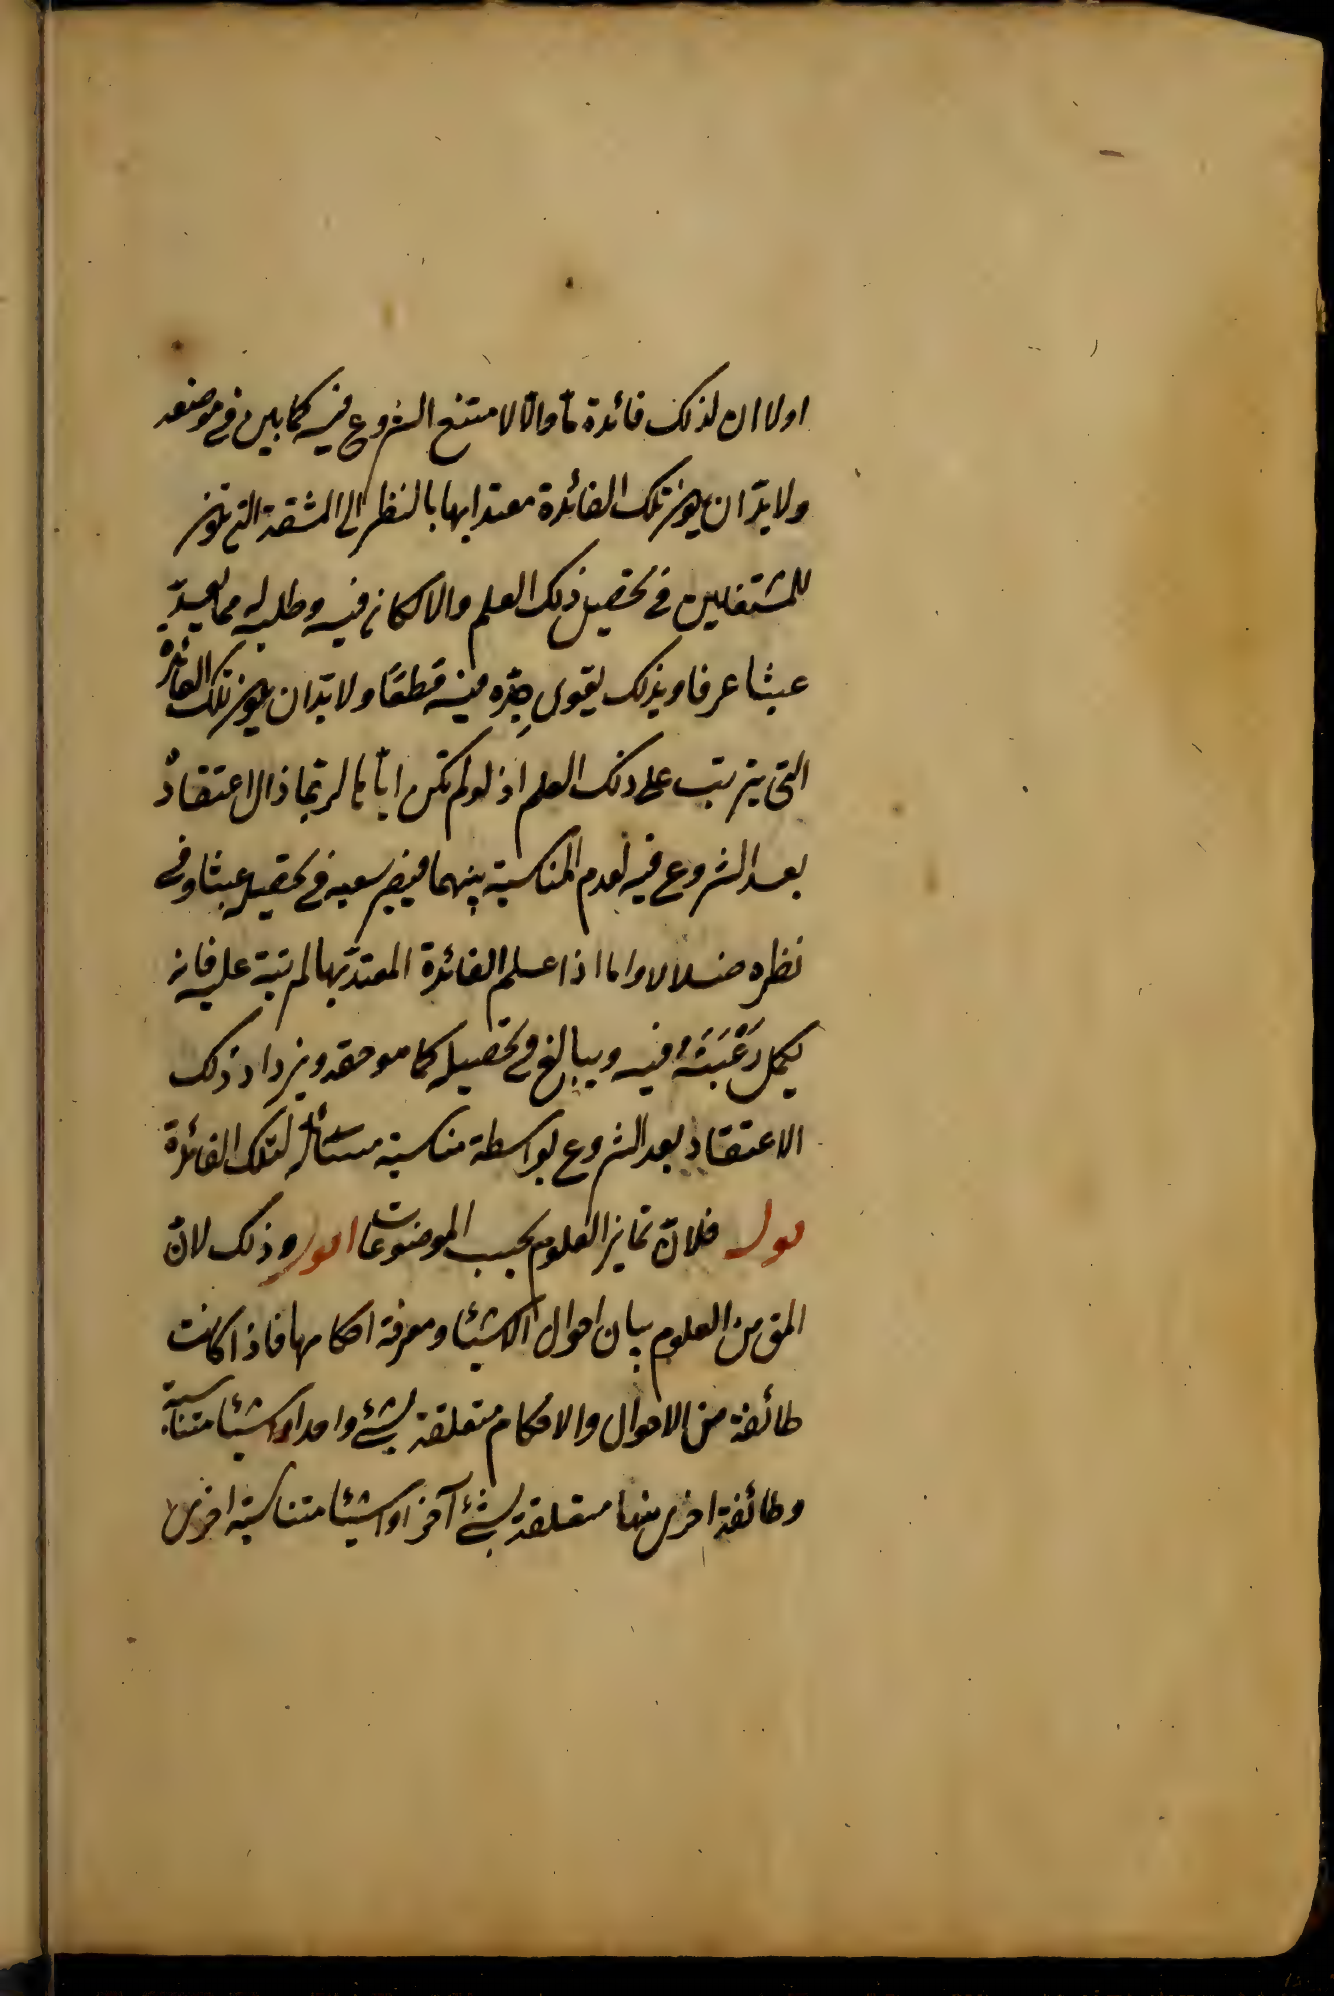 اولا ان لذلك فائدة ما والا لامتنع الشروع فيه كما بين في موضعه
ولا بدّ ان يكون تلك الفائدة معتدا بها بالنظر الى المشقة التي تكون
للمشتغلين في تحصيل ذلك العلم والا لكان فيه وطلبه مما يعدّ
عبثا عرفا وبذلك يقوى جدّه فيه قطعًا ولا بدّ ان يكون تلك الفائدة
التي يترتب على ذلك العلم اذ لو لم تكن اياها لربما زال اعتقاده
بعد الشروع فيه لعدم المناسبة بينهما فيصير سعيه في تحصيله عبثا وفي
نظره ضلالا واما اذا علم الفائدة المعتدّ بها المترتبة عليه فانه
يكمل رَغْبَتَهُ فيه ويبالغ في تحصيله كما هو حقه ويزداد ذلك
الاعتقاد بعد الشروع بواسطة مناسبة مسائله لتلك الفائدة
قوله فلانّ تمايز العلوم بحسب الموضوعات اقول وذلك لانّ
المق من العلوم بيان احوال الاشيئا ومعرفة احكامها فاذا كانت
طائفة من الاحوال والاحكام متعلقة بشئ واحد او اشيئا متناسبة
وطائفة اخرى منها متعلقة بشئ آخر او اشيئا متناسبة اخرى